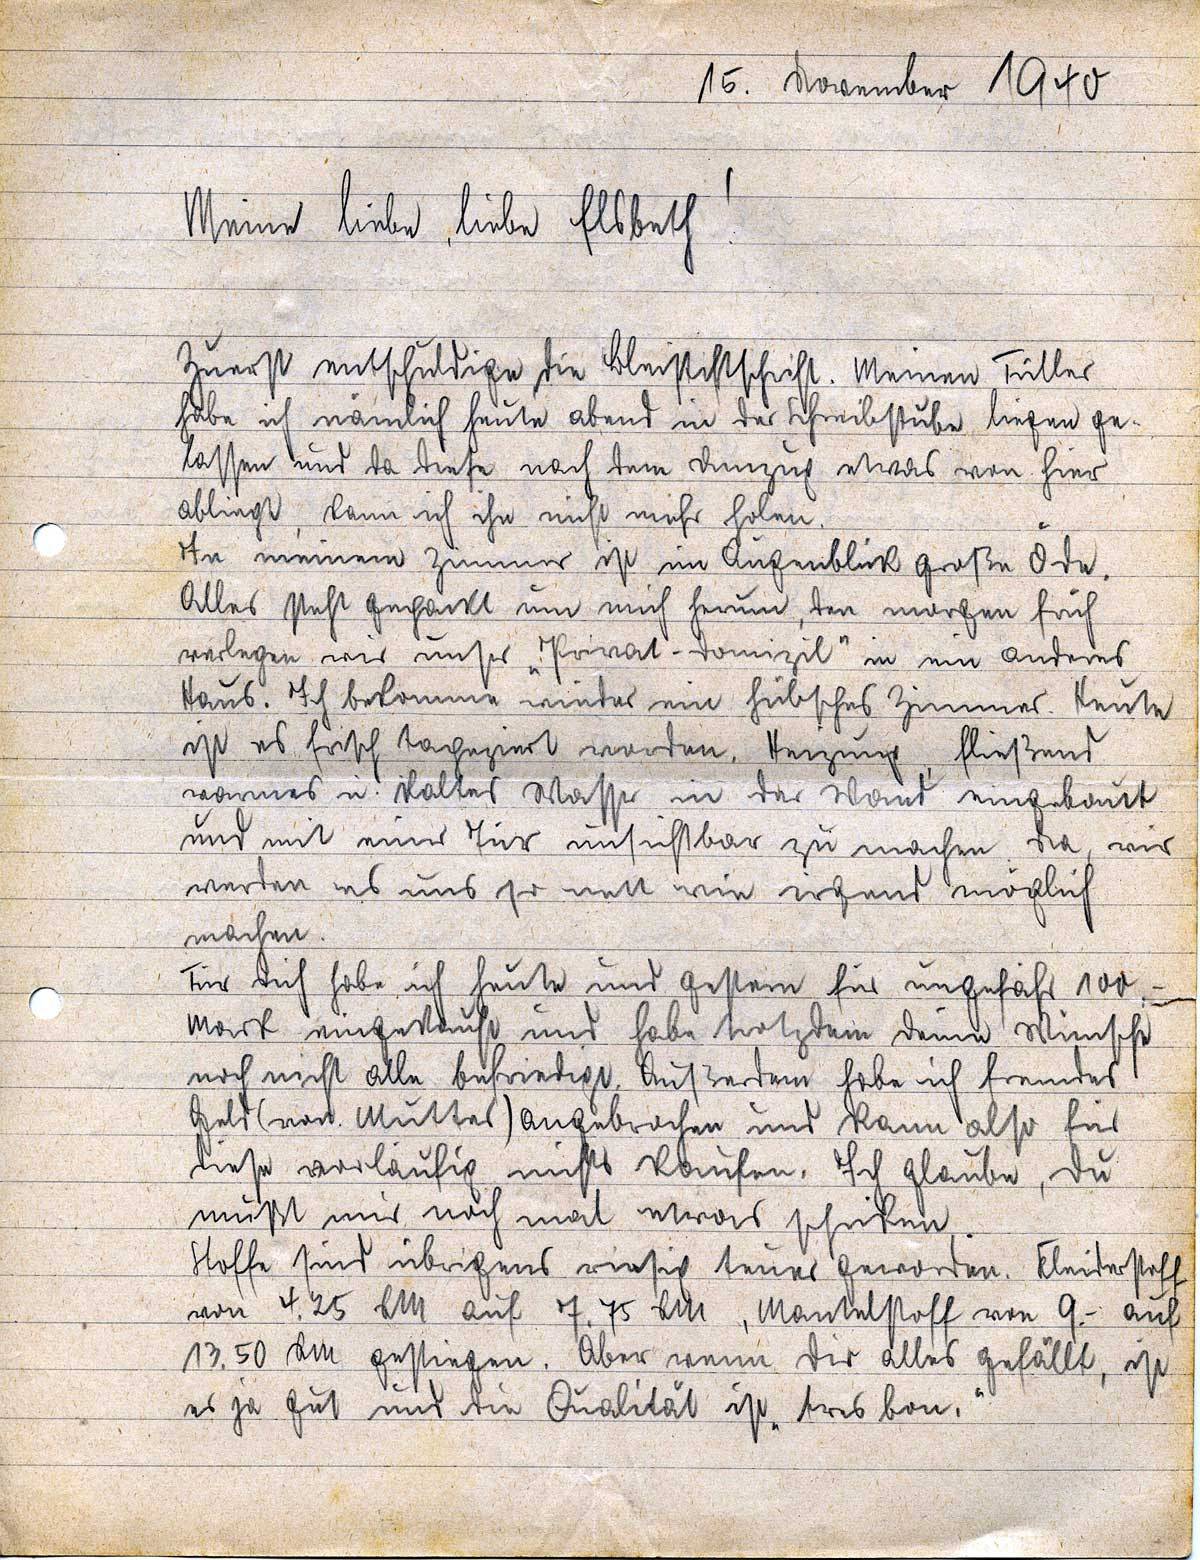 15. November 1940
Meine liebe, liebe Elsbeth!
Zuerst entschuldige die Bleistiftschrift. Meinen Füller
habe ich nämlich heute abend in der Schreibstube liegen ge-
lassen und da diese nach dem Umzug etwas von hier
abliegt, kann ich ihn nicht mehr holen.
In meinem Zimmer ist im Augenblick große Öde.
Alles steht gepackt um mich herum, den morgen früh
verlegen wir unser „Privat-Domizil" in ein anderes
Haus. Ich bekomme wieder ein hübsches Zimmer. Heute
ist es frisch tapeziert worden. Heizung, fließend
warmes u. kaltes Wasser in der Wand eingebaut
und mit einer Tür unsichtbar zu machen da, wir
werden es uns so nett wie irgend möglich
machen.
Für Dich habe ich heute und gestern für ungefähr 100.-
Mark eingekauft und habe trotzdem Deine Wünsche
noch nicht alle befriedigt. Außerdem habe ich fremdes
Geld (von Mutter) angebrochen und kann also für
diese vorläufig nichts kaufen. Ich glaube, Du
mußt mir noch mal etwas schicken.
Stoffe sind übrigens riesig teuer geworden. Kleiderstoff
von 4.25 RM auf 7.75 RM, Mantelstoff von 9.- auf
13.50 RM gestiegen. Aber wenn Dir alles gefällt, ist
es ja gut und die Qualität ist „tres bon."